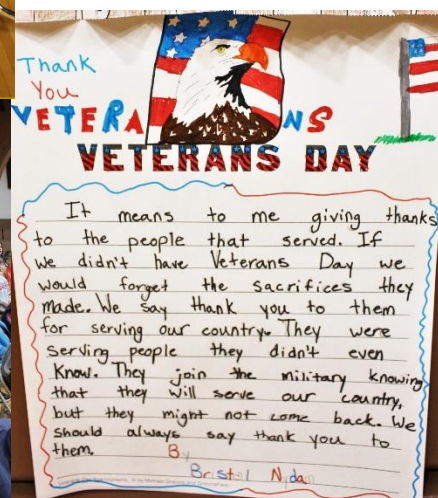 Thank
You
VETERANS
VETERANS DAY
It means to me giving thanks
to the people that served. If
we didn't have Veterans Day we
would forget the sacrifices they
made. We say thank you to them
for serving our country. They were
serving people they didn't even
know. They join the military knowing
that they will serve our country,
but they might not come back. We
should always say thank you to
them. By
Bristol Nydam